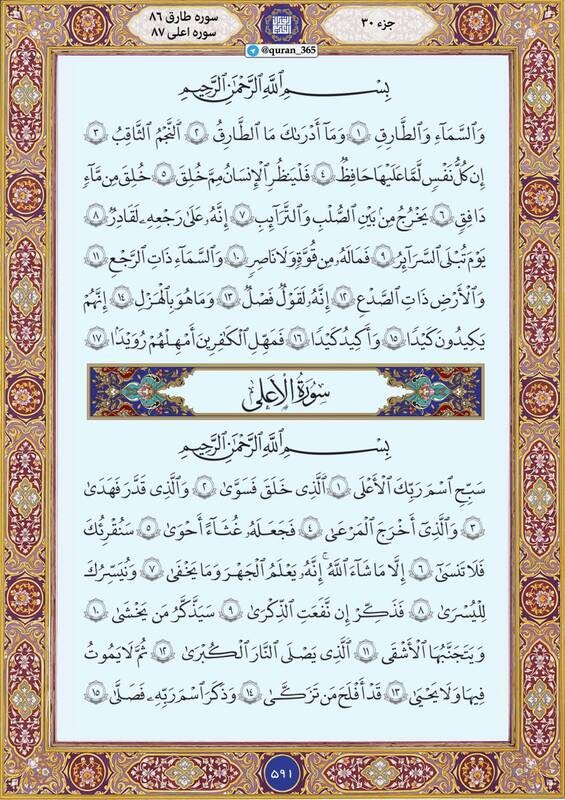 سوره طارق ۸۶
سوره اعلی ۸۷
جزء ۳۰
@quran_365
بِسْمِ ٱللَّهِ ٱلرَّحْمَٰنِ ٱلرَّحِيمِ
وَٱلسَّمَآءِ وَٱلطَّارِقِ ۝۱ وَمَآ أَدْرَىٰكَ مَا ٱلطَّارِقُ ۝۲ ٱلنَّجْمُ ٱلثَّاقِبُ ۝۳
إِن كُلُّ نَفْسٍ لَّمَّا عَلَيْهَا حَافِظٌ ۝۴ فَلْيَنظُرِ ٱلْإِنسَٰنُ مِمَّ خُلِقَ ۝۵ خُلِقَ مِن مَّآءٍ
دَافِقٍ ۝۶ يَخْرُجُ مِنۢ بَيْنِ ٱلصُّلْبِ وَٱلتَّرَآئِبِ ۝۷ إِنَّهُۥ عَلَىٰ رَجْعِهِۦ لَقَادِرٌ ۝۸
يَوْمَ تُبْلَى ٱلسَّرَآئِرُ ۝۹ فَمَا لَهُۥ مِن قُوَّةٍ وَلَا نَاصِرٍ ۝۱۰ وَٱلسَّمَآءِ ذَاتِ ٱلرَّجْعِ ۝۱۱
وَٱلْأَرْضِ ذَاتِ ٱلصَّدْعِ ۝۱۲ إِنَّهُۥ لَقَوْلٌ فَصْلٌ ۝۱۳ وَمَا هُوَ بِٱلْهَزْلِ ۝۱۴ إِنَّهُمْ
يَكِيدُونَ كَيْدًا ۝۱۵ وَأَكِيدُ كَيْدًا ۝۱۶ فَمَهِّلِ ٱلْكَٰفِرِينَ أَمْهِلْهُمْ رُوَيْدًۢا ۝۱۷
سُورَةُ الْأَعْلَىٰ
بِسْمِ ٱللَّهِ ٱلرَّحْمَٰنِ ٱلرَّحِيمِ
سَبِّحِ ٱسْمَ رَبِّكَ ٱلْأَعْلَى ۝۱ ٱلَّذِى خَلَقَ فَسَوَّىٰ ۝۲ وَٱلَّذِى قَدَّرَ فَهَدَىٰ
۝۳ وَٱلَّذِىٓ أَخْرَجَ ٱلْمَرْعَىٰ ۝۴ فَجَعَلَهُۥ غُثَآءً أَحْوَىٰ ۝۵ سَنُقْرِئُكَ
فَلَا تَنسَىٰٓ ۝۶ إِلَّا مَا شَآءَ ٱللَّهُ ۚ إِنَّهُۥ يَعْلَمُ ٱلْجَهْرَ وَمَا يَخْفَىٰ ۝۷ وَنُيَسِّرُكَ
لِلْيُسْرَىٰ ۝۸ فَذَكِّرْ إِن نَّفَعَتِ ٱلذِّكْرَىٰ ۝۹ سَيَذَّكَّرُ مَن يَخْشَىٰ ۝۱۰
وَيَتَجَنَّبُهَا ٱلْأَشْقَى ۝۱۱ ٱلَّذِى يَصْلَى ٱلنَّارَ ٱلْكُبْرَىٰ ۝۱۲ ثُمَّ لَا يَمُوتُ
فِيهَا وَلَا يَحْيَىٰ ۝۱۳ قَدْ أَفْلَحَ مَن تَزَكَّىٰ ۝۱۴ وَذَكَرَ ٱسْمَ رَبِّهِۦ فَصَلَّىٰ ۝۱۵
۵۹۱